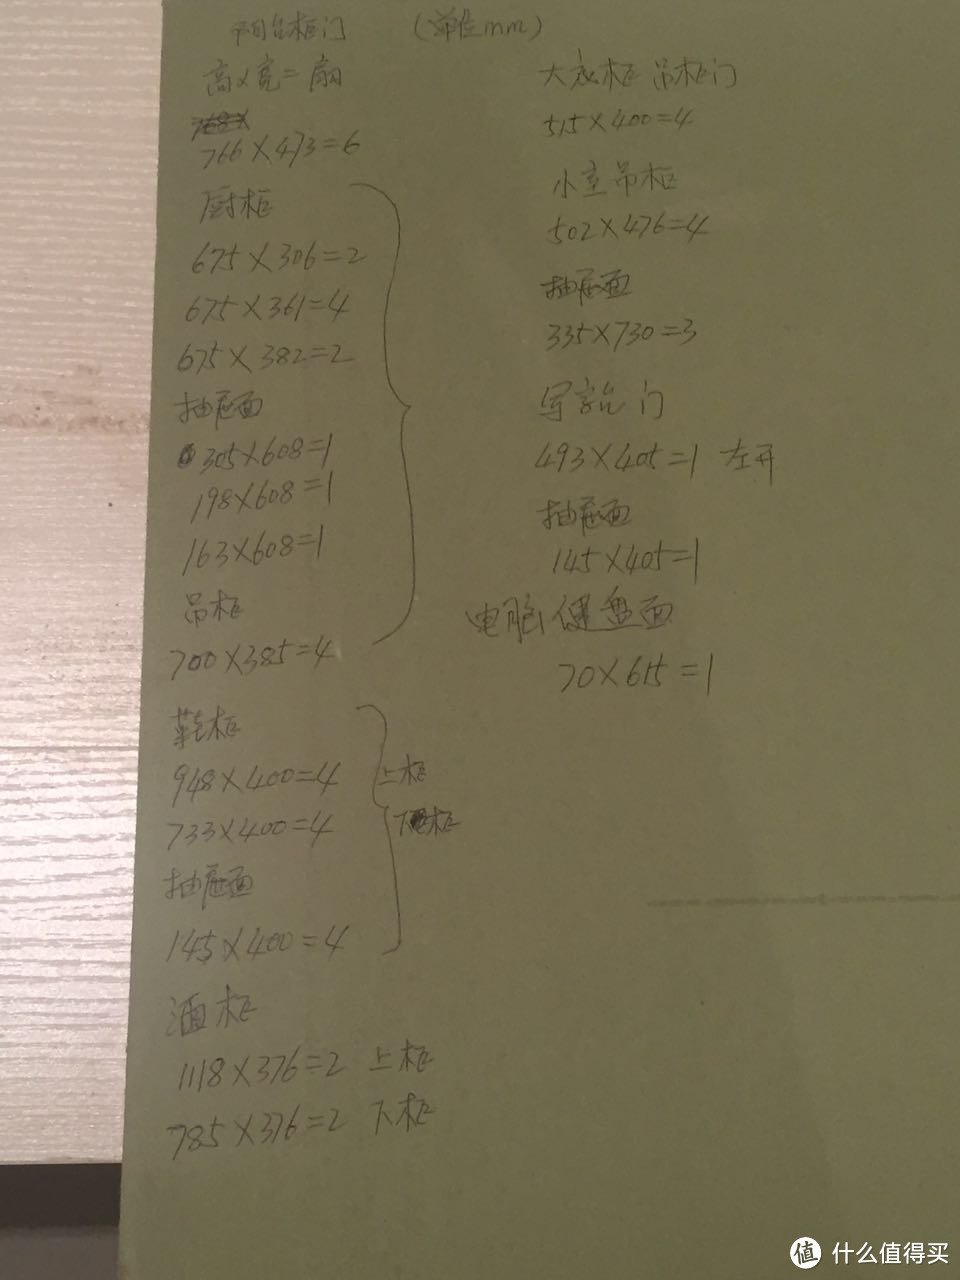 阳台柜门 (单位mm)
高×宽=扇
766×473=6
厨柜
675×306=2
675×361=4
675×382=2
抽屉面
305×608=1
198×608=1
163×608=1
吊柜
700×385=4
鞋柜
948×400=4 上柜
733×400=4 下柜
抽屉面
145×400=4
酒柜
1118×376=2 上柜
785×376=2 下柜
大衣柜 吊柜门
515×400=4
小室吊柜
502×476=4
抽屉面
335×730=3
写字台门
493×405=1 左开
抽屉面
145×405=1
电脑键盘面
70×615=1
值 什么值得买